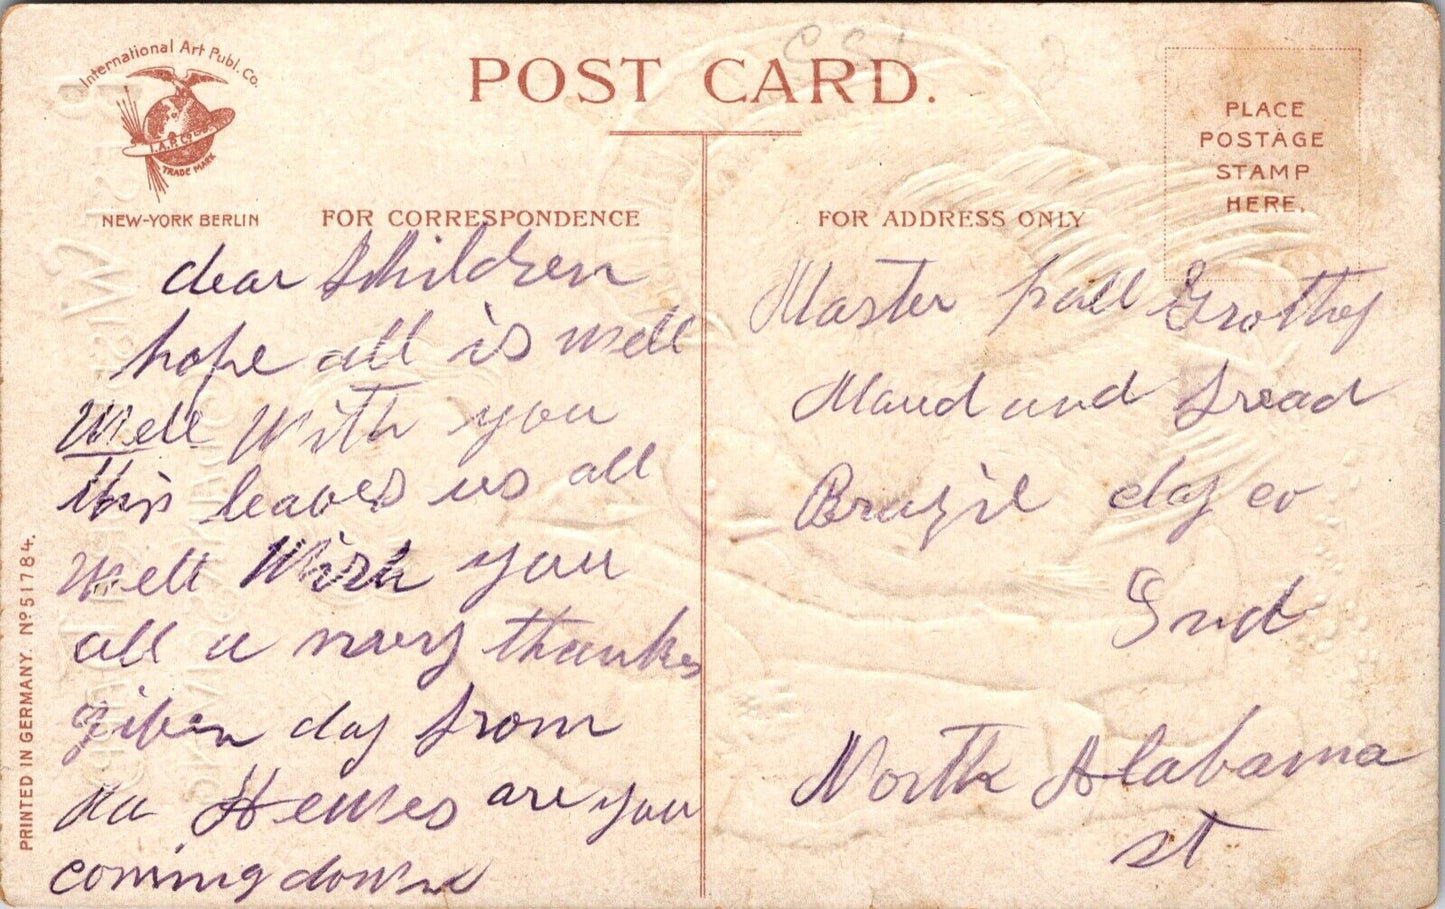 International Art Publ. Co.
I.A.P. Co.
TRADE MARK
NEW-YORK BERLIN
POST CARD.
PLACE
POSTAGE
STAMP
HERE.
FOR CORRESPONDENCE
dear Children
hope all is well
Well With you
this leaves us all
well Wish you
all a mary thanks
given day from
are you
coming down
PRINTED IN GERMANY. No 51784.
FOR ADDRESS ONLY
Master
Maud and
Brazil clay co
Ind
North Alabama
st